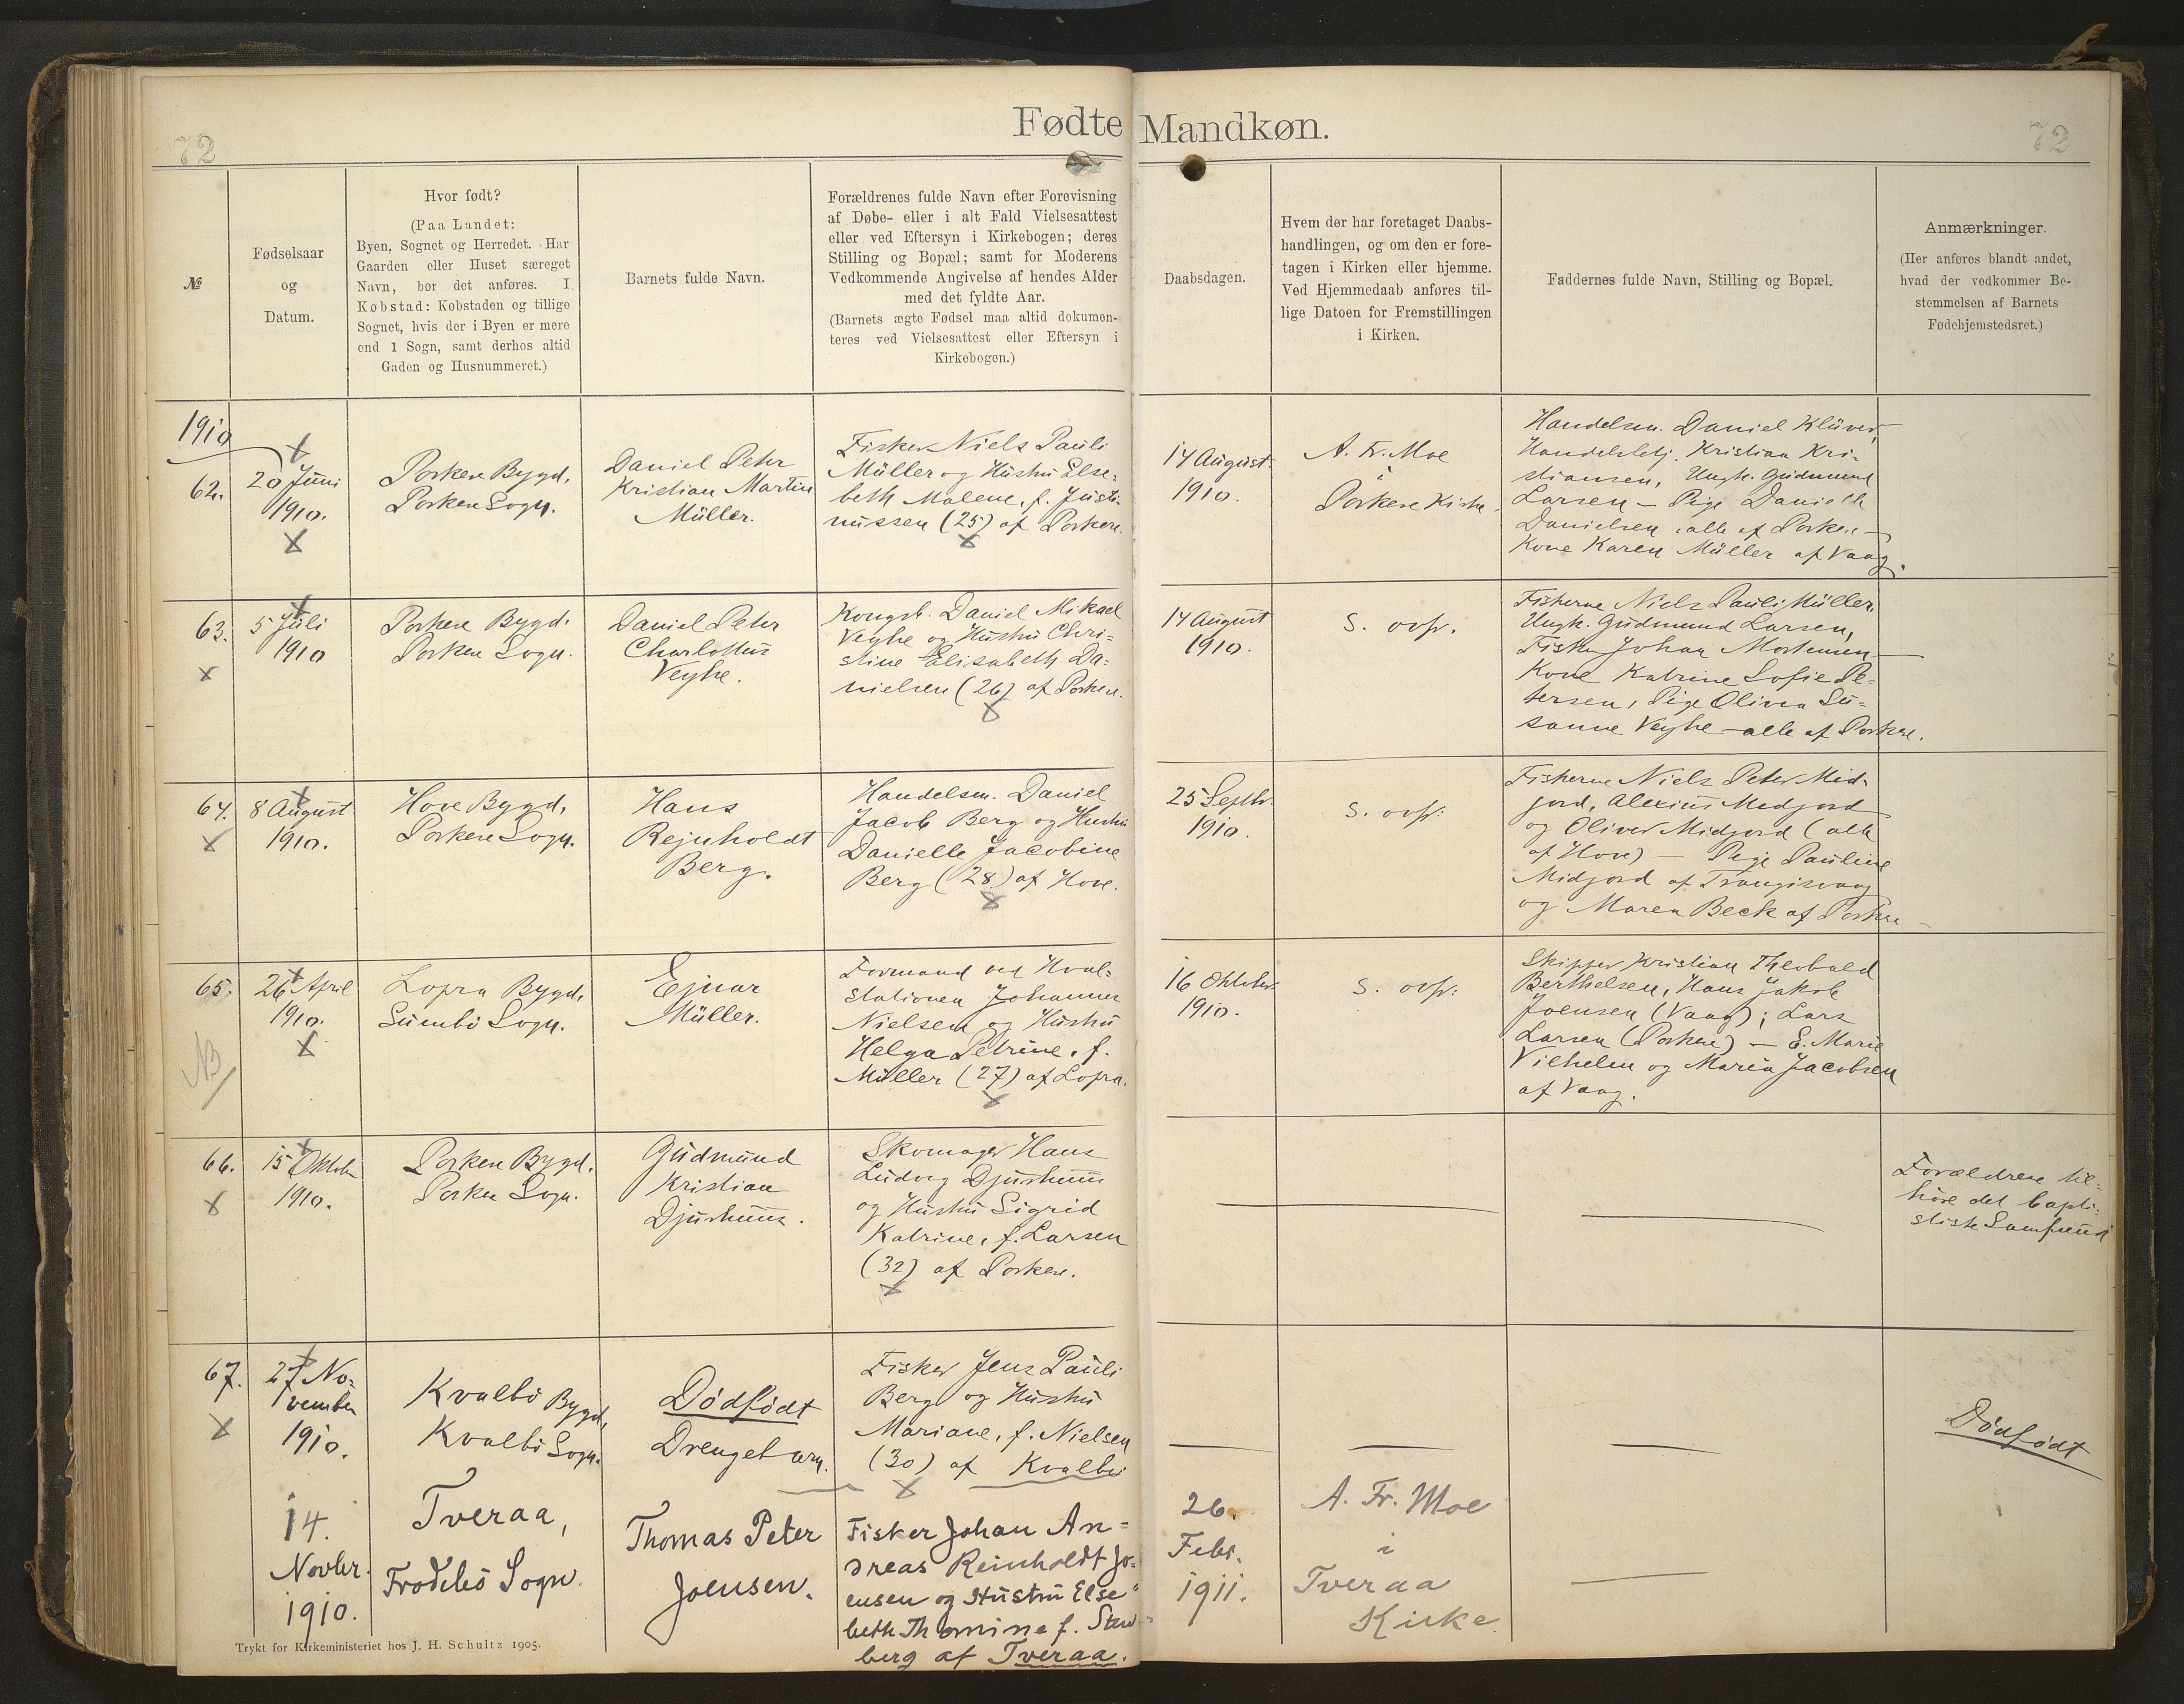 72
Fødte Mandkøn.
72
№
Fødselsaar
og
Datum.
Hvor født?
(Paa Landet:
Byen, Sognet og Herredet. Har
Gaarden eller Huset særeget
Navn, bør det anføres. I
Købstad: Købstaden og tillige
Sognet, hvis der i Byen er mere
end 1 Sogn, samt derhos altid
Gaden og Husnummeret.)
Barnets fulde Navn.
Forældrenes fulde Navn efter Forevisning
af Døbe- eller i alt Fald Vielsesattest
eller ved Eftersyn i Kirkebogen; deres
Stilling og Bopæl; samt for Moderens
Vedkommende Angivelse af hendes Alder
med det fyldte Aar.
(Barnets ægte Fødsel maa altid dokumen-
teres ved Vielsesattest eller Eftersyn i
Kirkebogen.)
Daabsdagen.
Hvem der har foretaget Daabs-
handlingen, og om den er fore-
tagen i Kirken eller hjemme.
Ved Hjemmedaab anføres til-
lige Datoen for Fremstillingen
i Kirken.
Faddernes fulde Navn, Stilling og Bopæl.
Anmærkninger.
(Her anføres blandt andet,
hvad der vedkommer Be-
stemmelsen af Barnets
Fødehjemstedsret.)
1910
62.
20 Juni
1910.
Porkere Bygd.
Porkere Sogn.
Daniel Peter
Kristian Martin
Müller.
Fisker Niels Pauli
Müller og Hustru Else-
beth Malene, f. Justi-
nussen (25) af Porkere.
14 August
1910.
A. Fr. Moe
i
Porkere Kirke
Handelsm. Daniel Klüver,
Handelsbetj. Kristian Kri-
stiansen, Ungk. Gudmund
Larsen – Pige Danielle
Danielsen, alle af Porkere –
Kone Karen Müller af Vaag.
63.
5 Juli
1910
Porkere Bygd.
Porkere Sogn.
Daniel Peter
Charlottus
Veyhe.
Kongsb. Daniel Mikael
Veyhe og Hustru Chri-
stine Elisabeth Da-
nielsen (26) af Porkere.
14 August
1910.
S. ovfr.
Fiskerne Niels Pauli Müller,
Ungk. Gudmund Larsen,
Fisker Johan Mortensen –
Kone Katrine Sofie Pe-
tersen, Pige Olivia Su-
sanne Veyhe – alle af Porkere.
64.
8 August
1910.
Hove Bygd,
Porkere Sogn.
Hans
Rejnholdt
Berg.
Handelsm. Daniel
Jacob Berg og Hustru
Danielle Jacobine
Berg (28) af Hove.
25 Septbr.
1910.
S. ovfr:
Fiskerne Niels Peter Mid-
jord, Alexius Midjord
og Oliver Midjord (alle
af Hove) – Pige Pauline
Midjord af Trangisvaag
og Maren Beck af Porkere
65.
NB
26 April
1910.
Lopra Bygd,
Sumbö Sogn.
Ejnar
Müller.
Formand ved Hval-
stationen Johannes
Nielsen og Hustru
Helga Petrine, f.
Müller (27) af Lopra.
16 Oktober
1910.
S. ovfr:
Skipper Kristian Theobald
Berthelsen, Hans Jakob
Joensen (Vaag); Lars
Larsen (Porkere) – E. Marie
Vilhelm og Maria Jacobsen
af Vaag.
66.
15 Oktober
1910.
Porkere Bygd.
Porkere Sogn.
Gudmund
Kristian
Djurhuus.
Skomager Hans
Ludvig Djurhuus
og Hustru Sigrid
Katrine, f. Larsen
(32) af Porkere.
Forældrene til-
höre det bapti-
stiske Samfund
67.
27 No-
vember
1910.
Kvalbö Bygd,
Kvalbö Sogn.
Dödfödt
Drengebarn.
Fisker Jens Pauli
Berg og Hustru
Mariane, f. Nielsen
(30) af Kvalbö
Dödfödt
14.
Novbr.
1910.
Tveraa,
Frodebö Sogn.
Thomas Peter
Joensen.
Fisker Johan An-
dreas Reinholdt Jo-
ensen og Hustru Else-
beth Thomine f.
berg af Tveraa.
26.
Febr.
1911.
A. Fr. Moe
i
Tveraa
Kirke.
Trykt for Kirkeministeriet hos J. H. Schultz 1905.